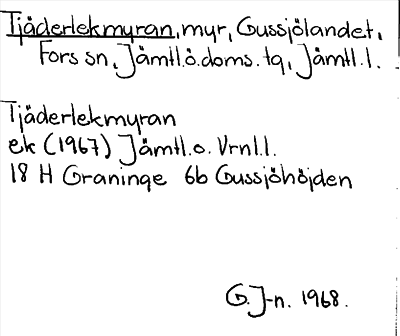 Tjäderlekmyran, myr, Gussjölandet,
Fors sn, Jämtl.ö.doms.tg, Jämtl.l.
Tjäderlekmyran
ek (1967) Jämtl.o. Vrnl.l.
18 H Graninge 6b Gussjöhöjden
G. J-n. 1968.